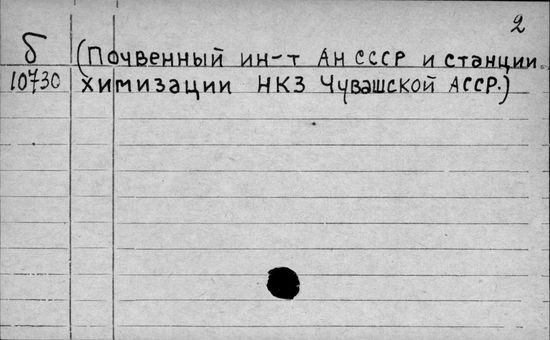 2
б (Почвенный ин-т Ан СССР и станции
10730 химизации НКЗ Чувашской АССР.)